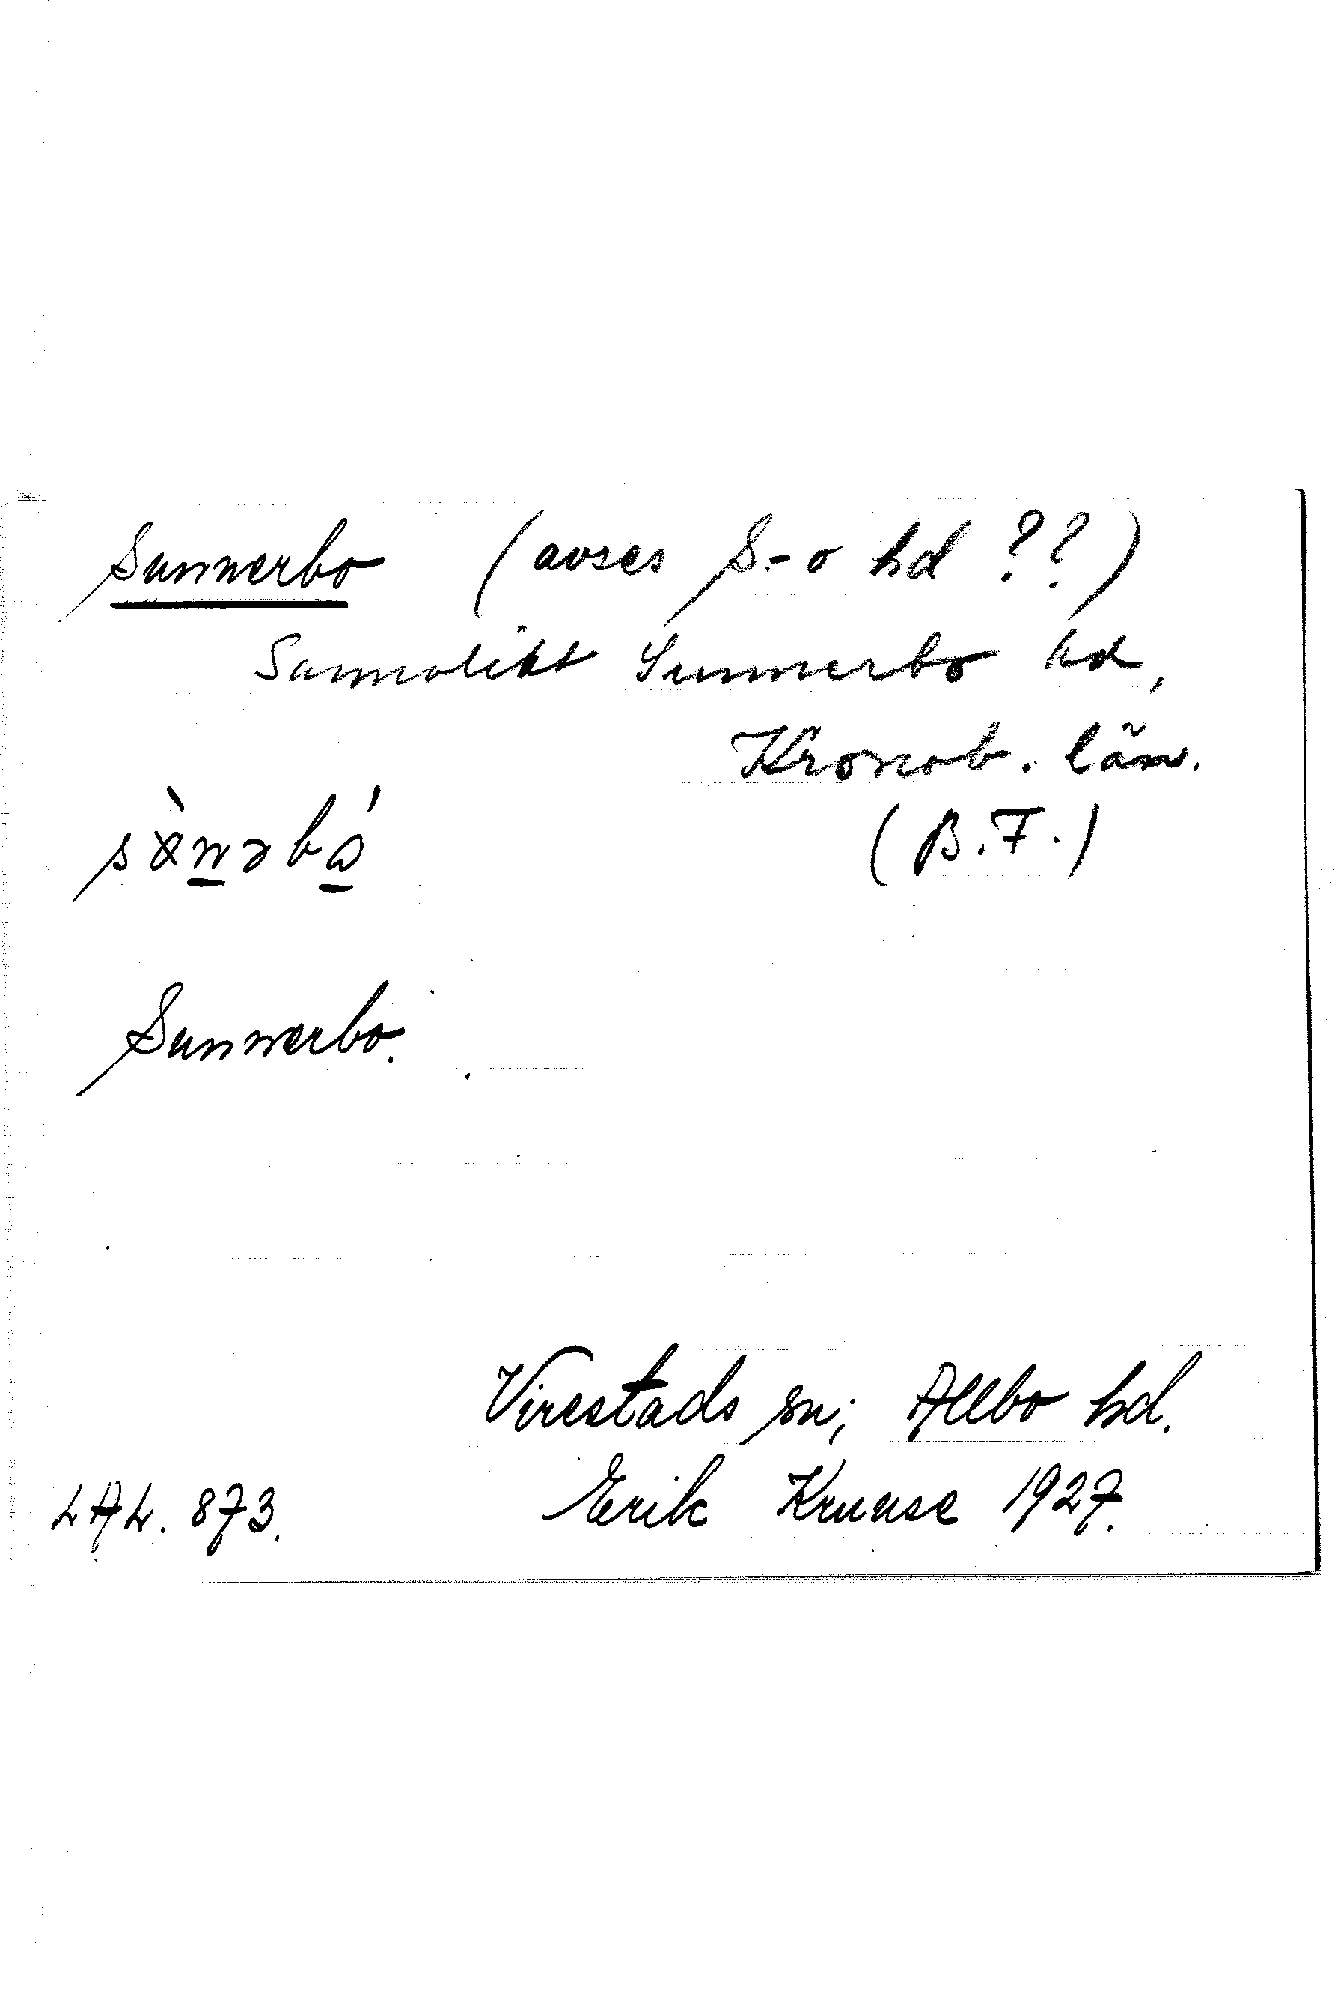 Sunnerbo (avses S-o hd ??)
Sannolikt Sunnerbo hd,
Kronob. län.
(B.F.)
sò̈nəbó
Sunnerbo.
Virestads sn; Allbo hd.
LAL. 873. Erik Kruuse 1927.